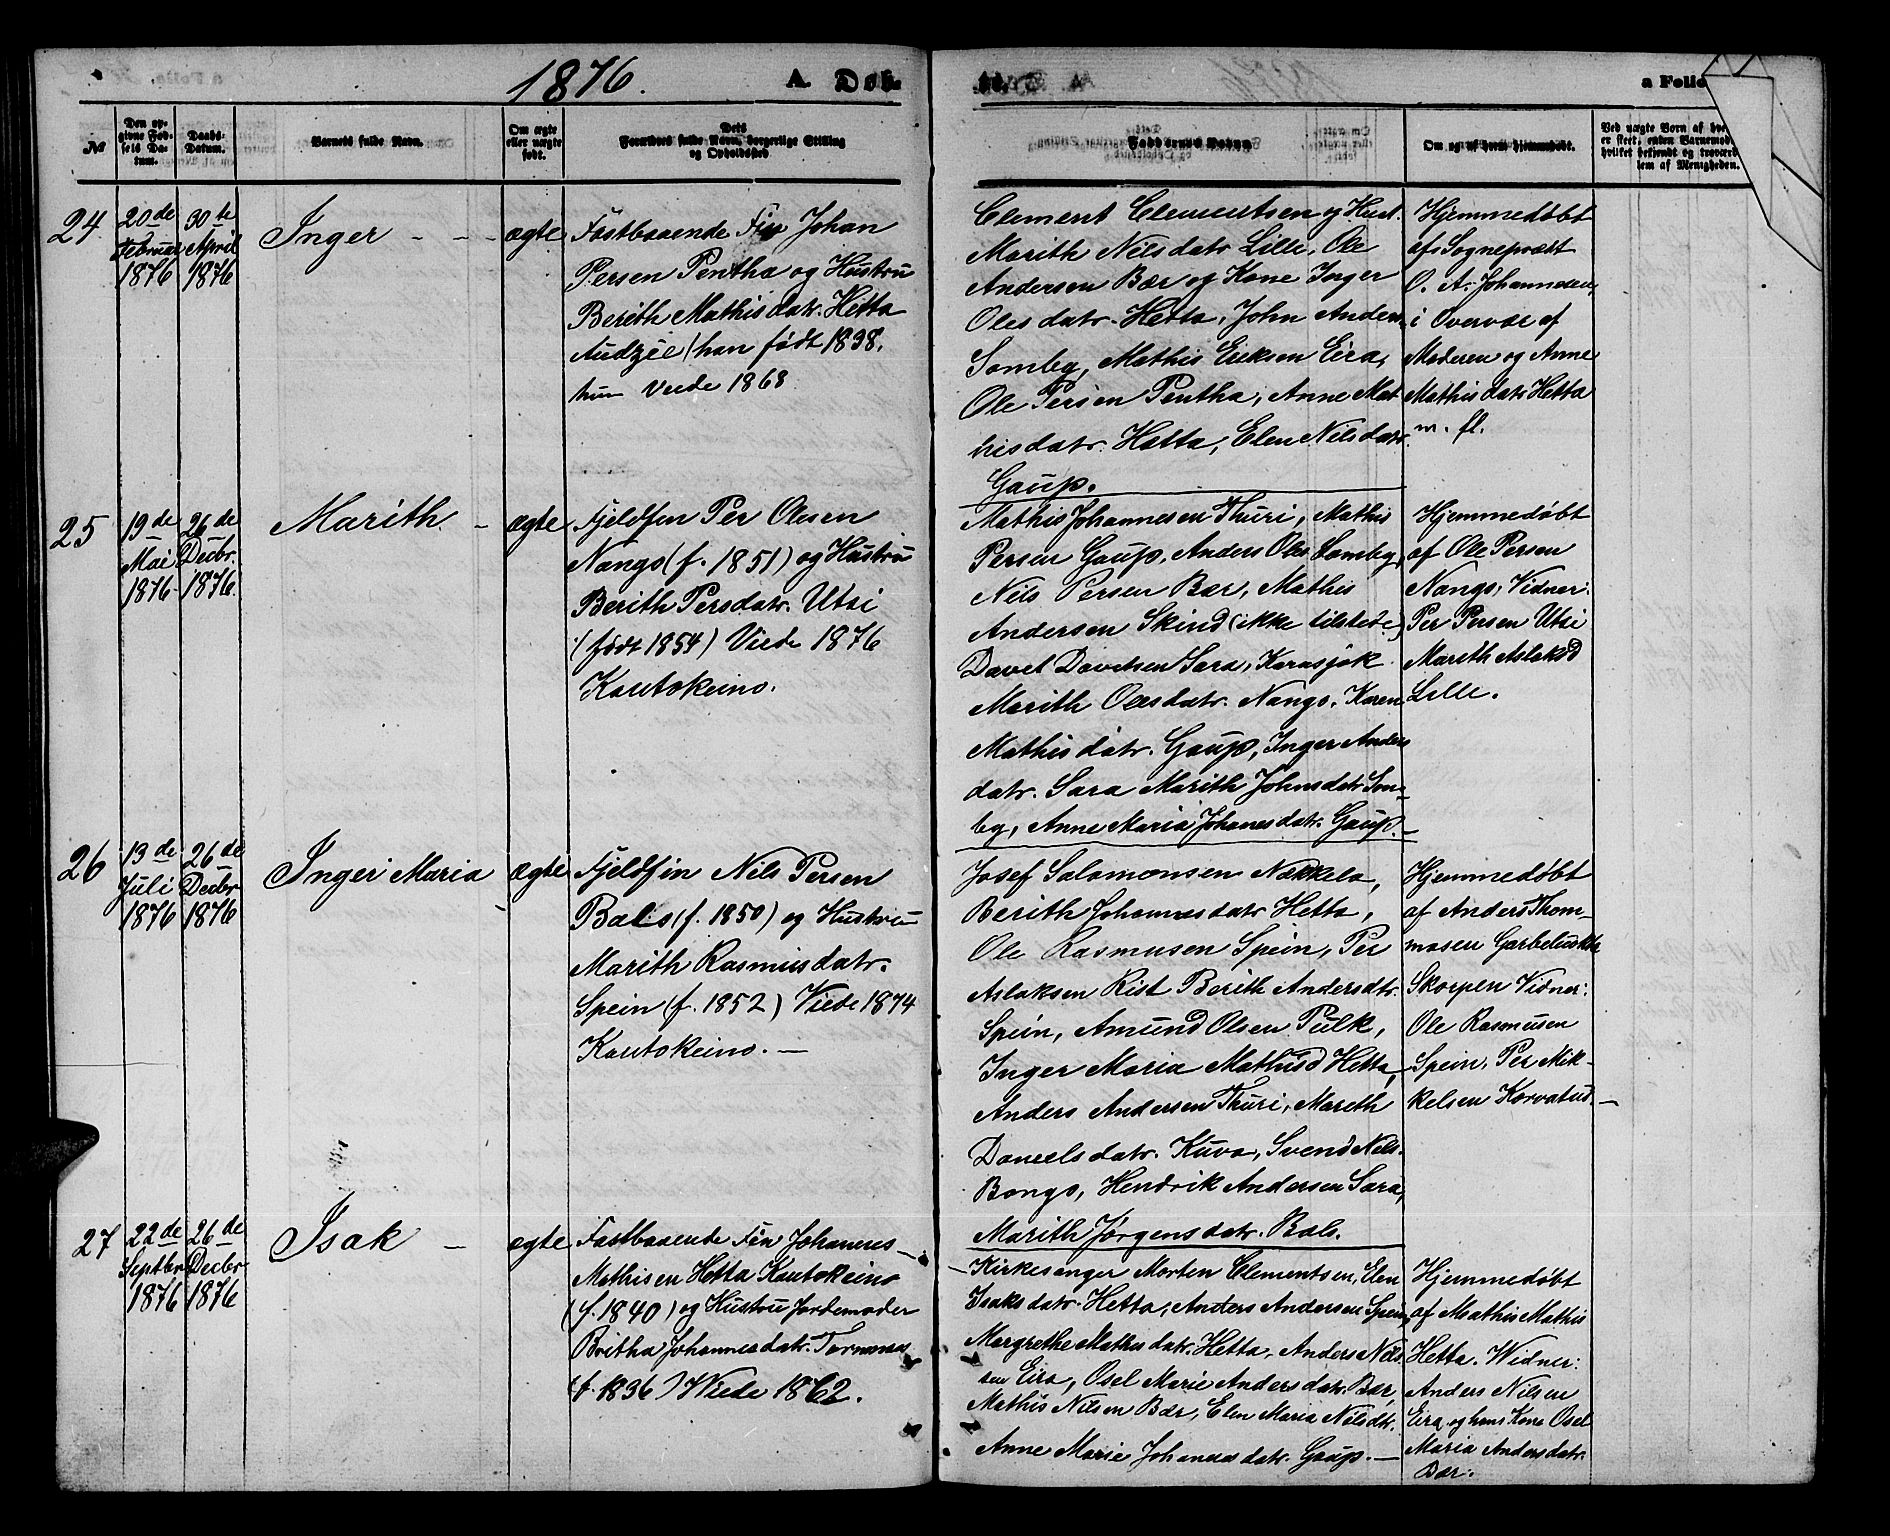 1876.
A. Døb
a Folio
No
Den op-
givne Fød-
sels Da-
tum.
Daabs-
Datum.
Barnets fulde Navn.
Om ægte
eller uægte
født.
Dets
Forældres fulde Navn, borgerlige Stilling
og Opholdssted
Faddernes Navn
Om og af hvem hjemmedøbt.
Ved uægte Børn af hve
er skeet, enten Barnemod
hvilket bekjendt og troværd
lem af Menigheden.
24
20de
Februar
1876
30te
April
1876
Inger - - -
ægte
Fastboaende Fin Johan
Persen Pentha og Hustru
Berith Mathisdatr. Hetta
Audzie (han født 1838,
hun viede 1868
Clement Clementsen og Hust.
Marith Nilsdatr Lille, Ole
Andersen Bær og Kone Inger
Olesdatr. Hetta, John Anders.
Somby, Mathis Eriksen Eira,
Ole Persen Pentha, Anne Mat
hisdatr. Hætta, Elen Nilsdatr.
Gaup.
Hjemmedøbt
af Sognepræst
O. A. Johannesen,
i Overvær af
Moderen og Anne
Mathisdatr Hetta
m. fl.
25
19de
Mai
1876
26de
Decbr.
1876
Marith -
ægte
Fjeldfin Per Olsen
Nango (f. 1851) og Hustru
Berith Persdatr. Utsi
(født 1854) Viede 1876
Kautokeino.
Mathis Johannesen Thuri, Mathis
Persen Gaup, Anders Ols. Somby,
Nils Persen Bær, Mathis
Andersen Skind (ikke tilstede)
Davet Davetsen Sara, Karasjok.
Marith Olesdatr. Nango, Karen
Mathisdatr. Gaup, Inger Anders
datr. Sara Marith Johnsdatr Som-
by, Anne Maria Johanesdatr. Gaup.
Hjemmedøbt
af Ole Persen
Nango, Vidner:
Per Persen Utsi
Marith Aslaksd
Lille.
26
13de
Juli
1876
26de
Decbr
1876
Inger Maria -
ægte
Fjeldfin Nils Persen
Bals (f. 1850) og Hustru
Marith Rasmusdatr.
Spein (f. 1852) Viede 1874
Kautokeino. -
Josef Salomonsen Nækkela,
Berith Johannesdatr Hetta,
Ole Rasmusen Spein, Per
Aslaksen Rist Berith Andersdtr.
Spein, Amund Olsen Pulk,
Inger Maria Mathisd Hetta,
Anders Andersen Thuri, Marith
Daneelsdatr. Kuva, Svend Nils.
Bongo, Hendrik Andersen Sara,
Marith Jørgensdatr. Bals.
Hjemmedøbt
af Anders Thom-
masen
Skorpen Vidner:
Ole Rasmusen
Spein, Per Mik-
kelsen Korvatus. -
27
22de
Septbr
1876
26de
Decbr
1876
Isak -
ægte
Fastboaende Fin Johannes
Mathisen Hetta Kautokeino
(f. 1840) og Hustru Jordemoder
Britha Johannesdatr. Tornensis
(f. 1836) Viede 1862.
Kirkesanger Morten Clementsen, Elen
Isaksdatr. Hetta, Anders Andersen Spein,
Margrethe Mathisdatr. Hetta, Anders Nils
sen Eira, Osel Marie Andersdatr. Bær,
Mathis Nilsen Bær, Elen Maria Nilsdtr.
Anne Marie Johannesdatr. Gaup. -
Hjemmedøbt
af Mathis Mathis
Hetta. Widner:
Anders Nilsen
Eira, og hans Kone Osel
Maria Andersdatr.
Bær.